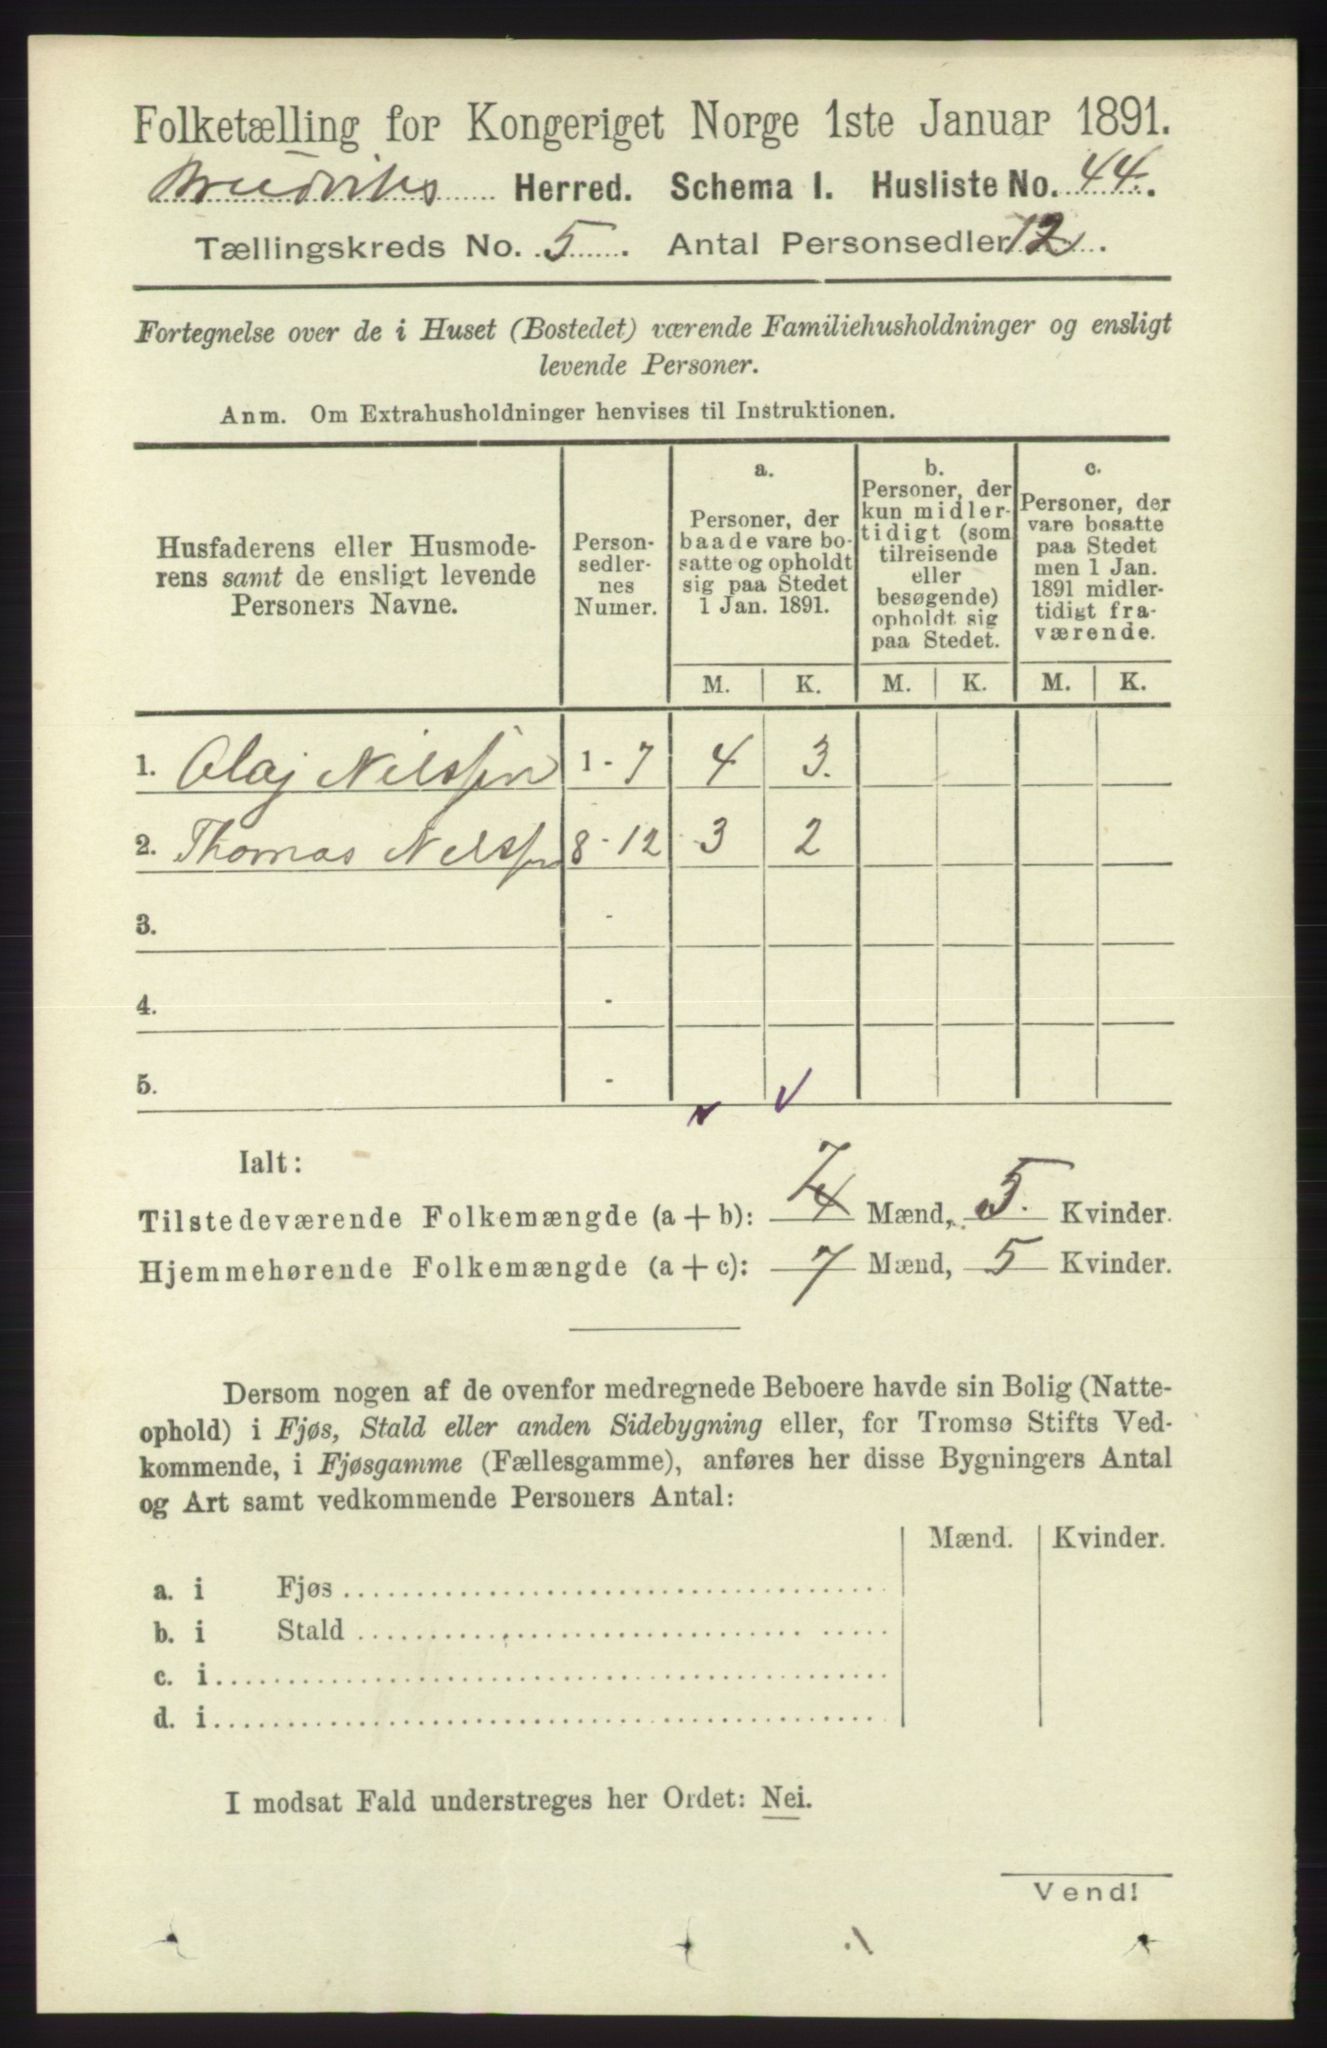 Folketælling for Kongeriget Norge 1ste Januar 1891.
Bruviks Herred. Schema I. Husliste No. 44.
Tællingskreds No. 5. Antal Personsedler 12.
Fortegnelse over de i Huset (Bostedet) værende Familiehusholdninger og ensligt
levende Personer.
Anm. Om Extrahusholdninger henvises til Instruktionen.
Husfaderens eller Husmode-
rens samt de ensligt levende
Personers Navne.
Person-
sedler-
nes
Numer.
a.
Personer, der
baade vare bo-
satte og opholdt
sig paa Stedet
1 Jan. 1891.
b.
Personer, der
kun midler-
tidigt (som
tilreisende
eller
besøgende)
opholdt sig
paa Stedet.
c.
Personer, der
vare bosatte
paa Stedet
men 1 Jan.
1891 midler-
tidigt fra-
værende.
M. K. M. K. M. K.
1. Olaj Nilssen 1 - 7 4 3.
2. Thomas Nelssen 8 - 12 3 2
3. -
4. -
5. -
Ialt:
Tilstedeværende Folkemængde (a + b): 7 Mænd, 5. Kvinder.
Hjemmehørende Folkemængde (a + c): 7 Mænd, 5 Kvinder.
Dersom nogen af de ovenfor medregnede Beboere havde sin Bolig (Natte-
ophold) i Fjøs, Stald eller anden Sidebygning eller, for Tromsø Stifts Ved-
kommende, i Fjøsgamme (Fællesgamme), anføres her disse Bygningers Antal
og Art samt vedkommende Personers Antal:
Mænd. Kvinder.
a. i Fjøs
b. i Stald
c. i
d. i
I modsat Fald understreges her Ordet: Nei.
Vend!